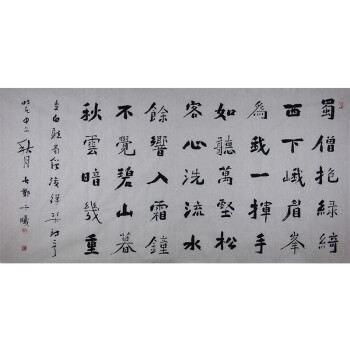 蜀僧抱綠綺
西下峨眉峯
為我一揮手
如聽萬壑松
客心洗流水
餘響入霜鐘
不覺碧山暮
秋雲暗幾重
李白聽蜀僧濬彈琴
秋月